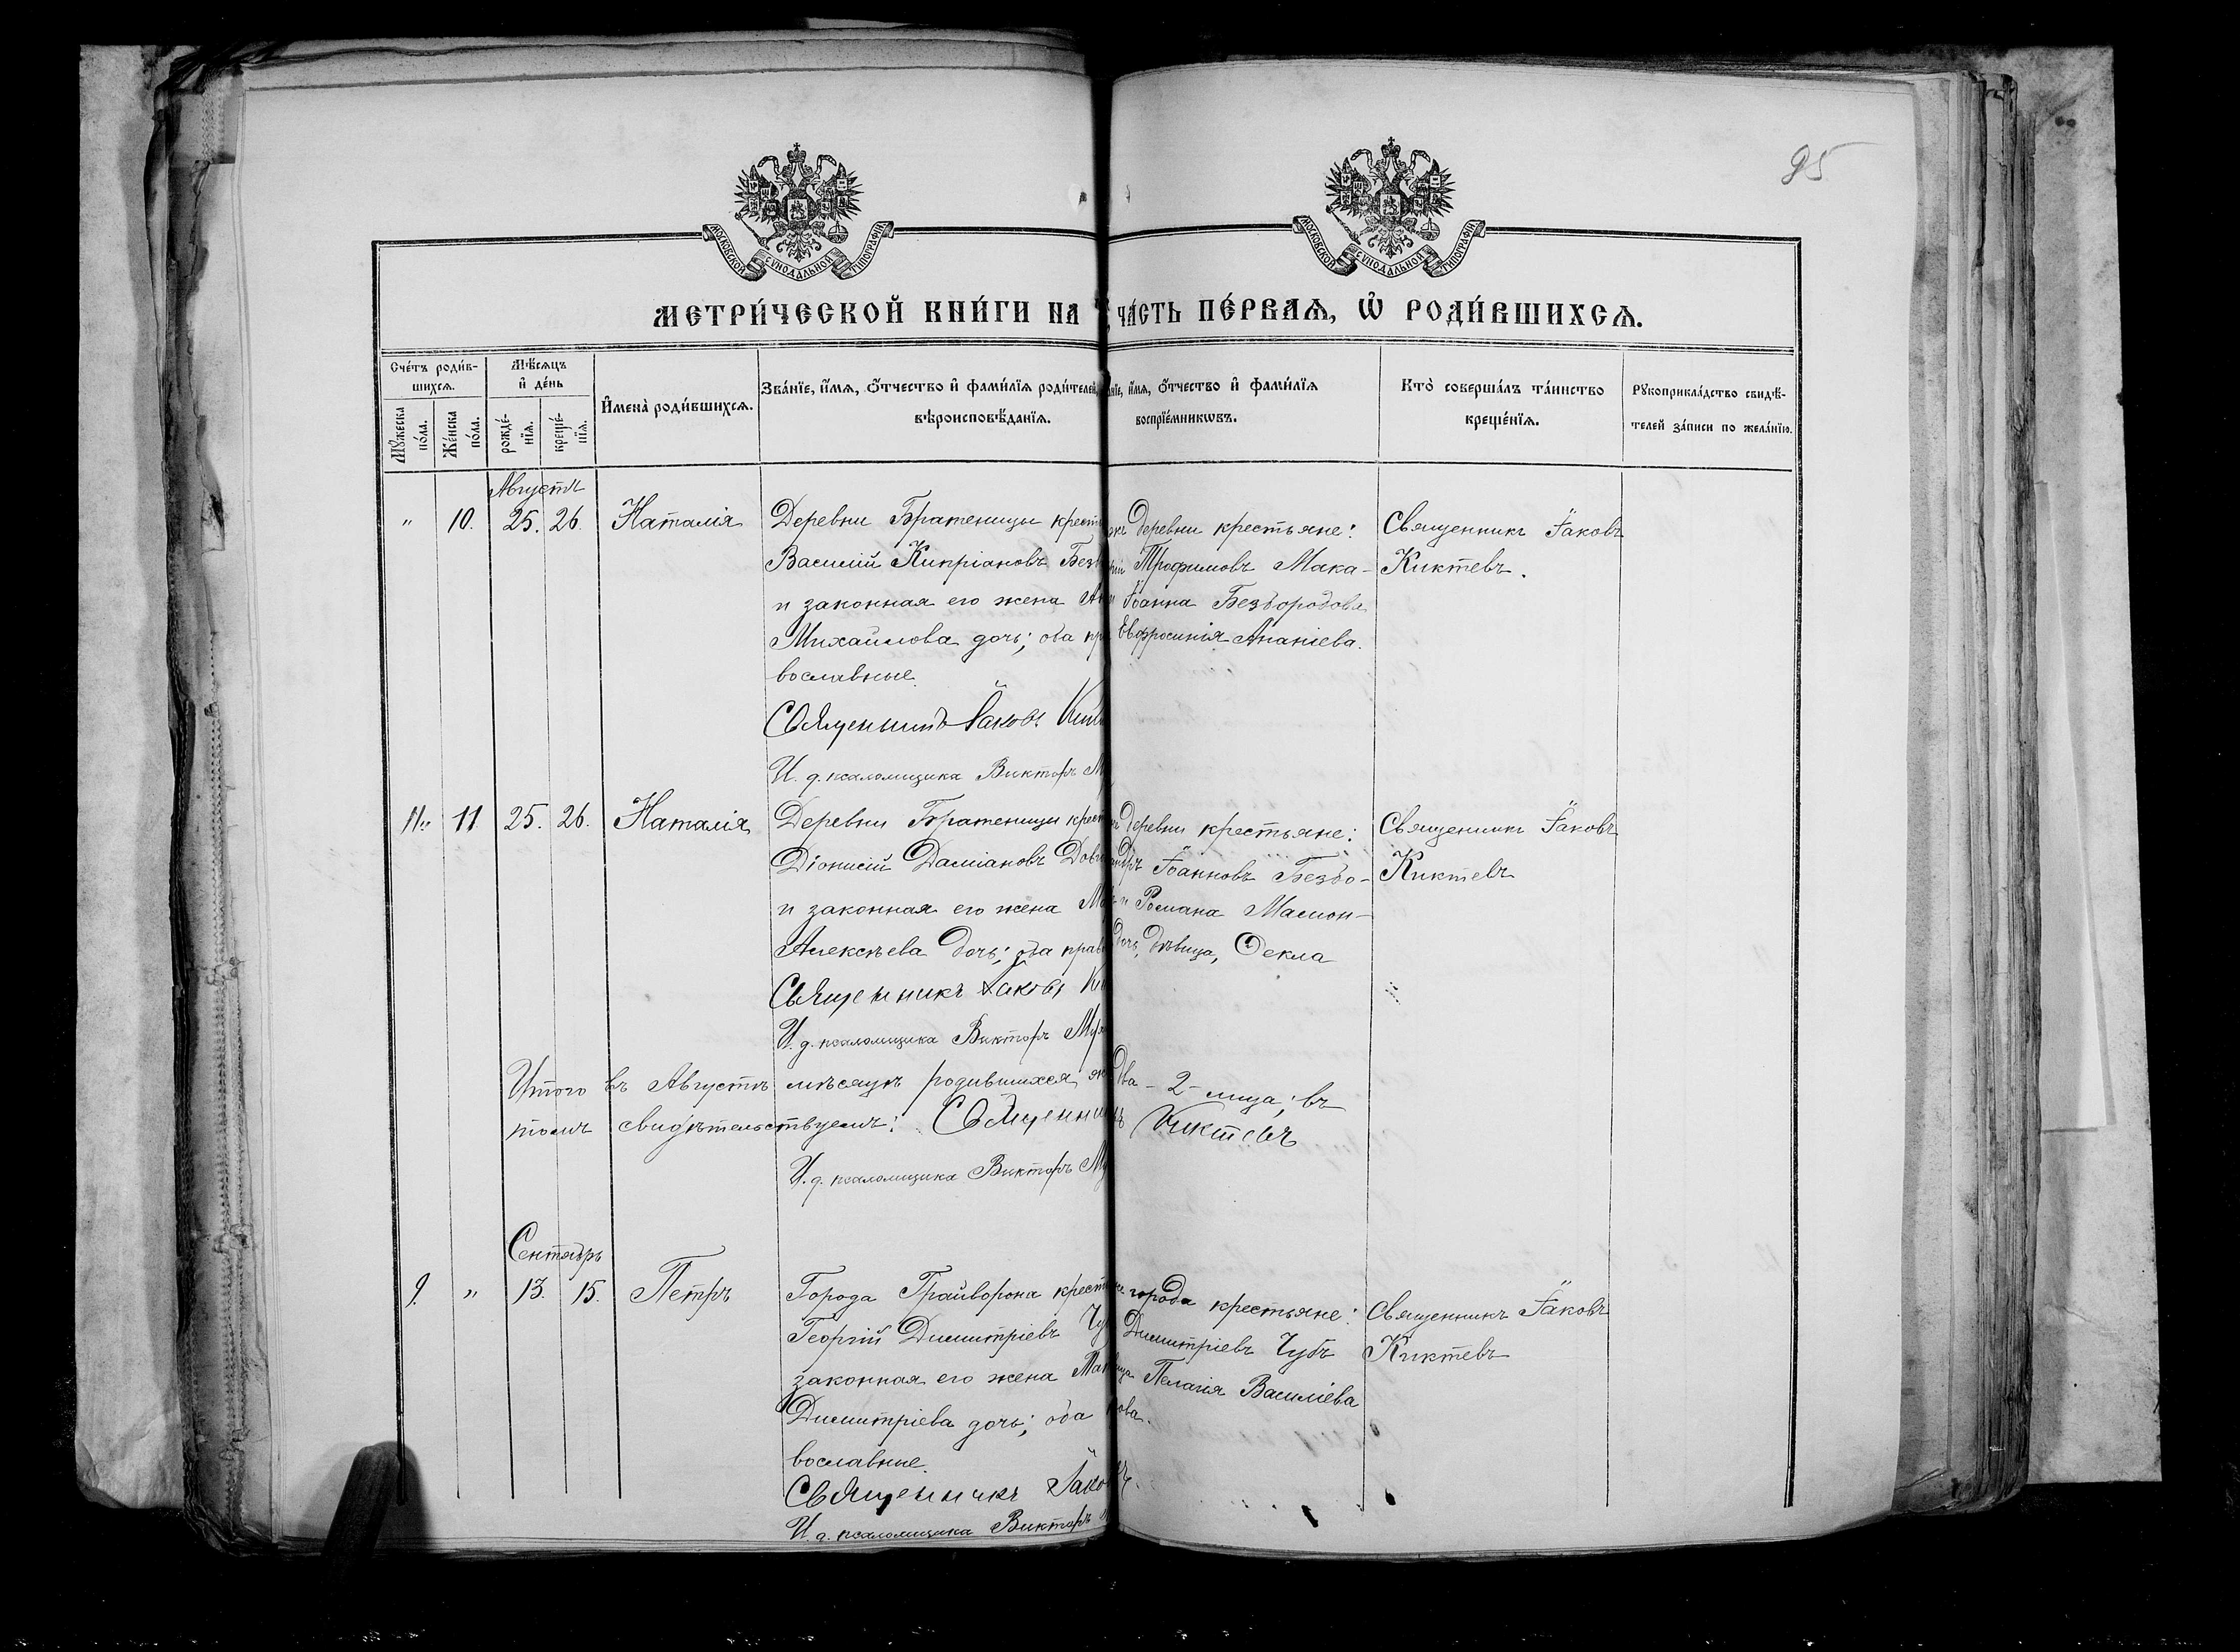 95
МОСКОВСКОЙ СѴНОДАЛЬНОЙ ТИПОГРАФІИ
МОСКОВСКОЙ СѴНОДАЛЬНОЙ ТИПОГРАФІИ
МЕТРИ́ЧЕСКОЙ КНИ́ГИ НА
ЧА́СТЬ ПЕ́РВАѦ, Ѡ҆ РОДИ́ВШИХСѦ.
Сче́тъ роди́в-
шихсѧ.
Мꙋ́жеска по́ла.
Же́нска по́ла.
Мѣ́сѧцъ и҆ де́нь
рожде́-
нїѧ.
креще́-
нїѧ.
И҆мена̀ роди́вшихсѧ.
Зва́нїе, и҆́мѧ, ѻ҆́тчество и҆ фами́лїѧ роди́телей,
вѣроисповѣ́данїѧ.
и҆́мѧ, ѻ҆́тчество и҆ фами́лїѧ
воспрїе́мникѡвъ.
Кто̀ соверша́лъ та́инство
креще́нїѧ.
Рꙋкоприкла́дство свидѣ́-
телей за́писи по жела́нїю.
Августъ
" 10. 25. 26. Наталія
Деревни Братеницы крест
Василій Кипріановъ Без
и законная его жена
Михайлова дочь; оба пр
вославные.
Священникъ Іаковъ
И. д. псаломщика Викторъ
деревни крестьяне:
Трофимовъ Мака-
Іоанна Безбородова
Евфросинія Ананіева.
Священникъ Іаковъ
Киктевъ.
11. 25. 26. Наталія
Деревни Братеницы крест
Діонисій Даміановъ
и законная его жена
Алексѣева дочь; оба прав
Священникъ Іаковъ
И. д. псаломщика Викторъ
деревни крестьяне:
Іоанновъ Безбо-
и Романа Мамон-
дочь, дѣвица, Ѳекла
Священникъ Іаковъ
Киктевъ
Итого въ Августѣ мѣсяцѣ родившихся
два - 2 - лица; въ
томъ свидѣтельствуемъ: Священникъ
Киктевъ
И. д. псаломщика Викторъ
Сентябрь
9. " 13. 15. Петръ
Города Грайворона крест
Георгій Димитріевъ
законная его жена
Димитріева дочь; оба
вославные.
Священникъ Іаковъ
И. д. псаломщика Викторъ
города крестьяне:
Димитріевъ Чубъ
Пелагія Василіева
Священникъ Іаковъ
Киктевъ